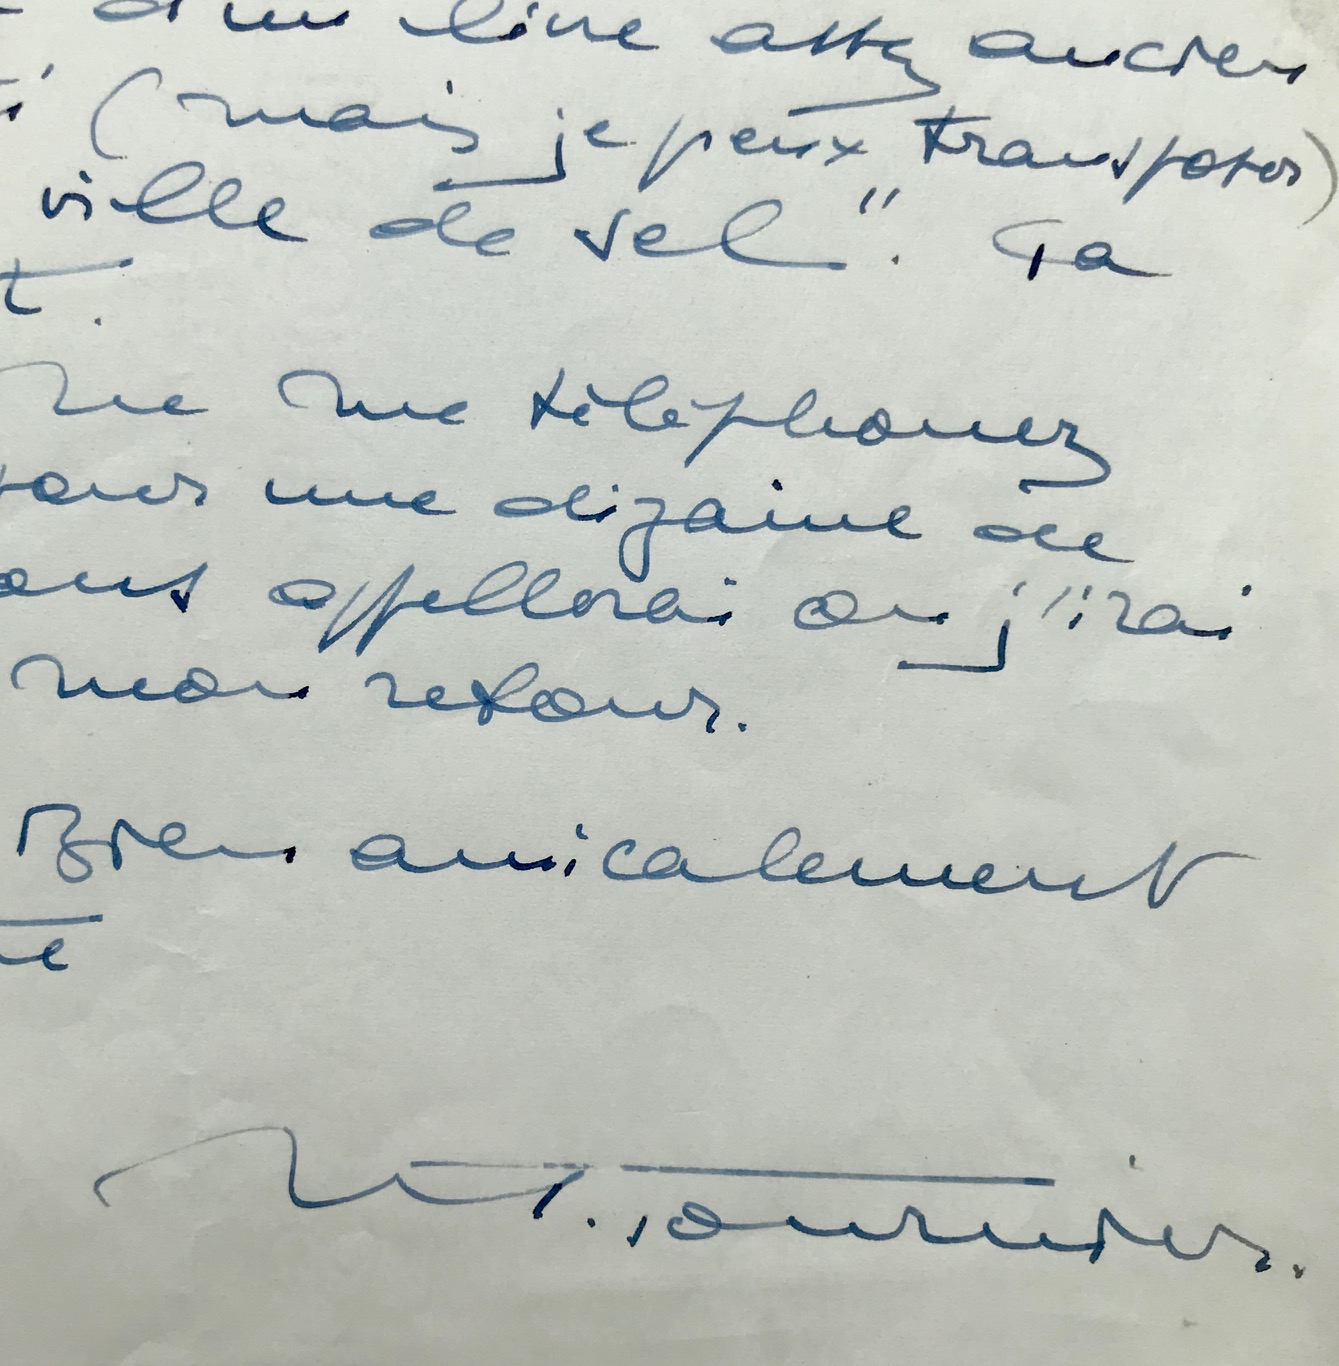 d'un livre assez ancien
(mais je peux transposer)
ville de sel". Ça
t.
ne me téléphonez
pour une dizaine de
vous appellerai ou j'irai
mon retour.
Bien amicalement
M. Tournier.